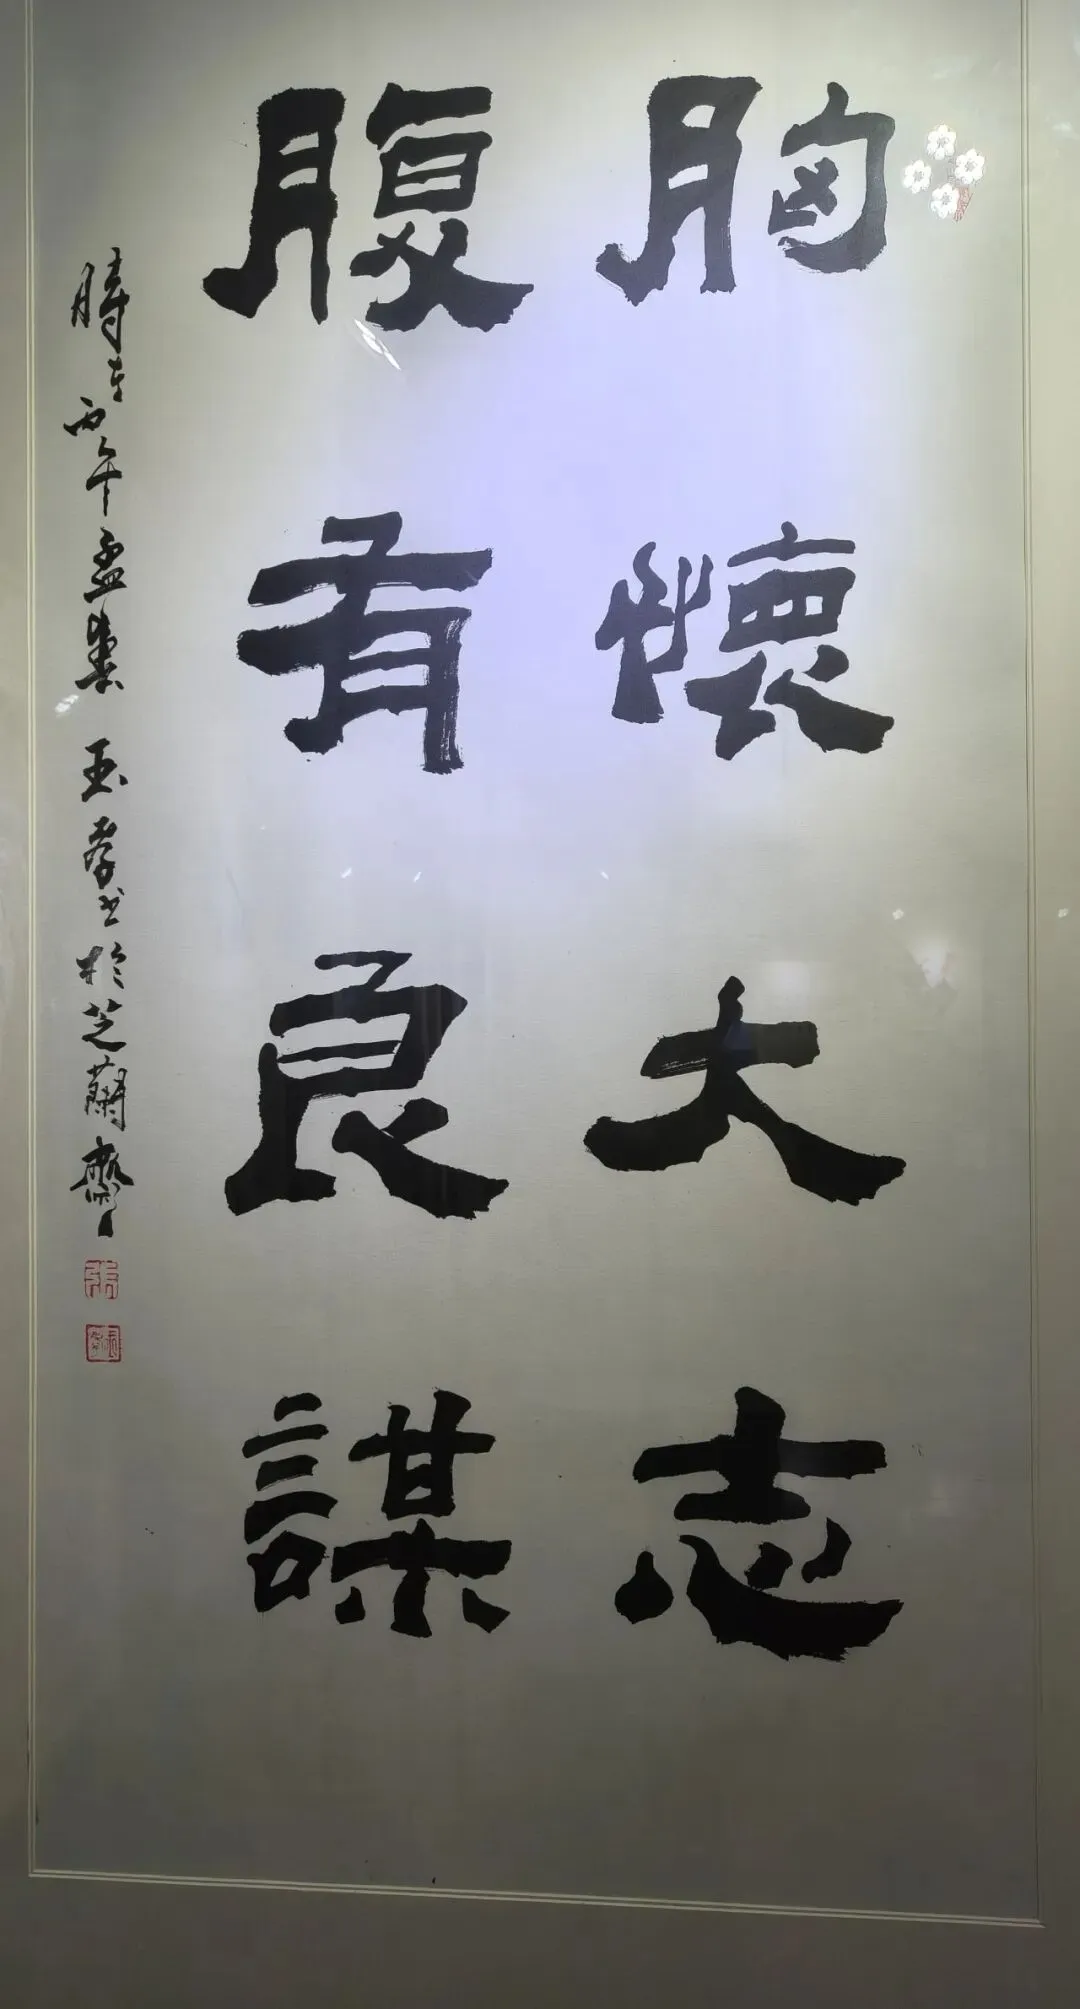 胸懷大志
腹有良謀
時在丙午孟夏 玉孝书於芝蘭齋